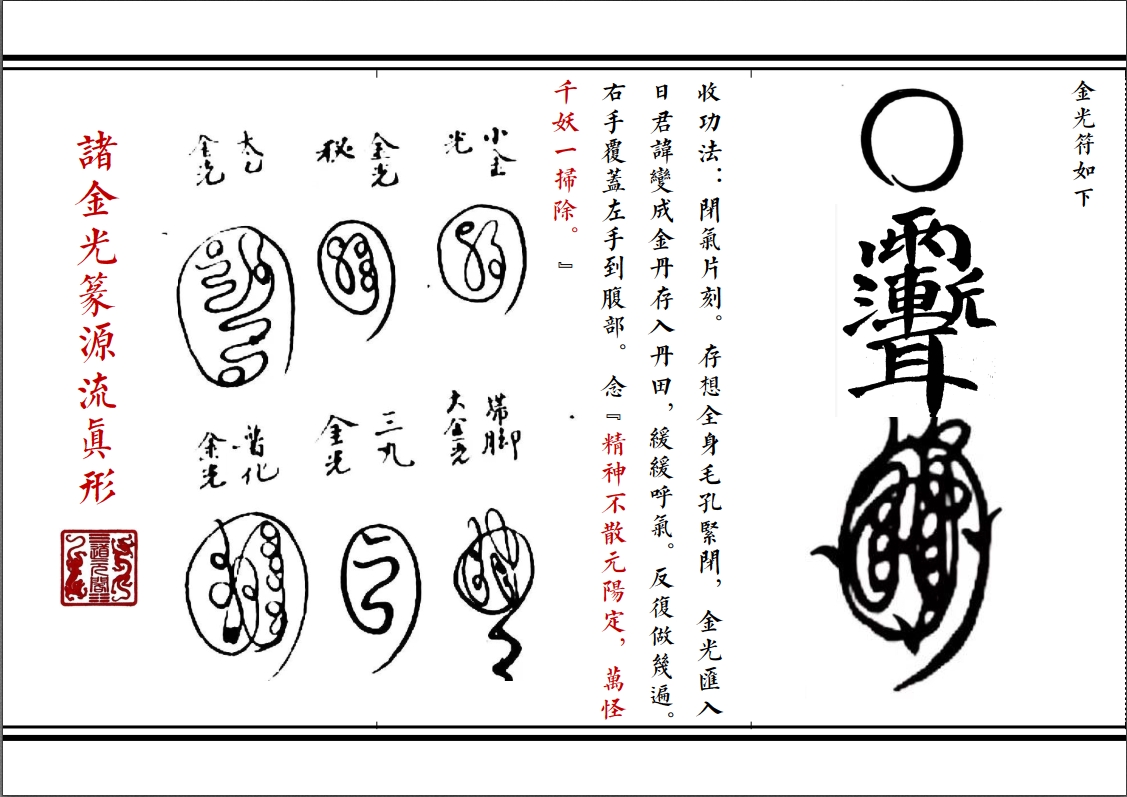 金光符如下
收功法：閉氣片刻。存想全身毛孔緊閉，金光匯入
日君諱變成金丹存入丹田，緩緩呼氣。反復做幾遍。
右手覆蓋左手到腹部。念『精神不散元陽定，萬怪
千妖一掃除。』
小金
光
金光
秘
太乙
金光
帶脚
大金光
三丸
金光
金光
諸金光篆源流眞形